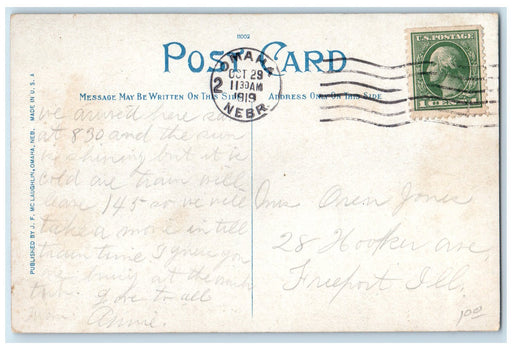 11002
POST CARD
OMAHA
2
OCT 29
1130AM
1919
NEBR.
U.S. POSTAGE
1 CENT 1
MESSAGE MAY BE WRITTEN ON THIS SIDE
ADDRESS ONLY ON THIS SIDE
PUBLISHED BY J. F. MCLAUGHLIN, OMAHA, NEB. MADE IN U S A
we arrived here
at 830 and the sun
is shining but it is
cold are train will
leave 145 so we will
take a movie in till
train time I guess you
are busy at the
love to all
Annie.
Mrs Oren Jones
28 Hooker ave,
Freeport Ill.
1000